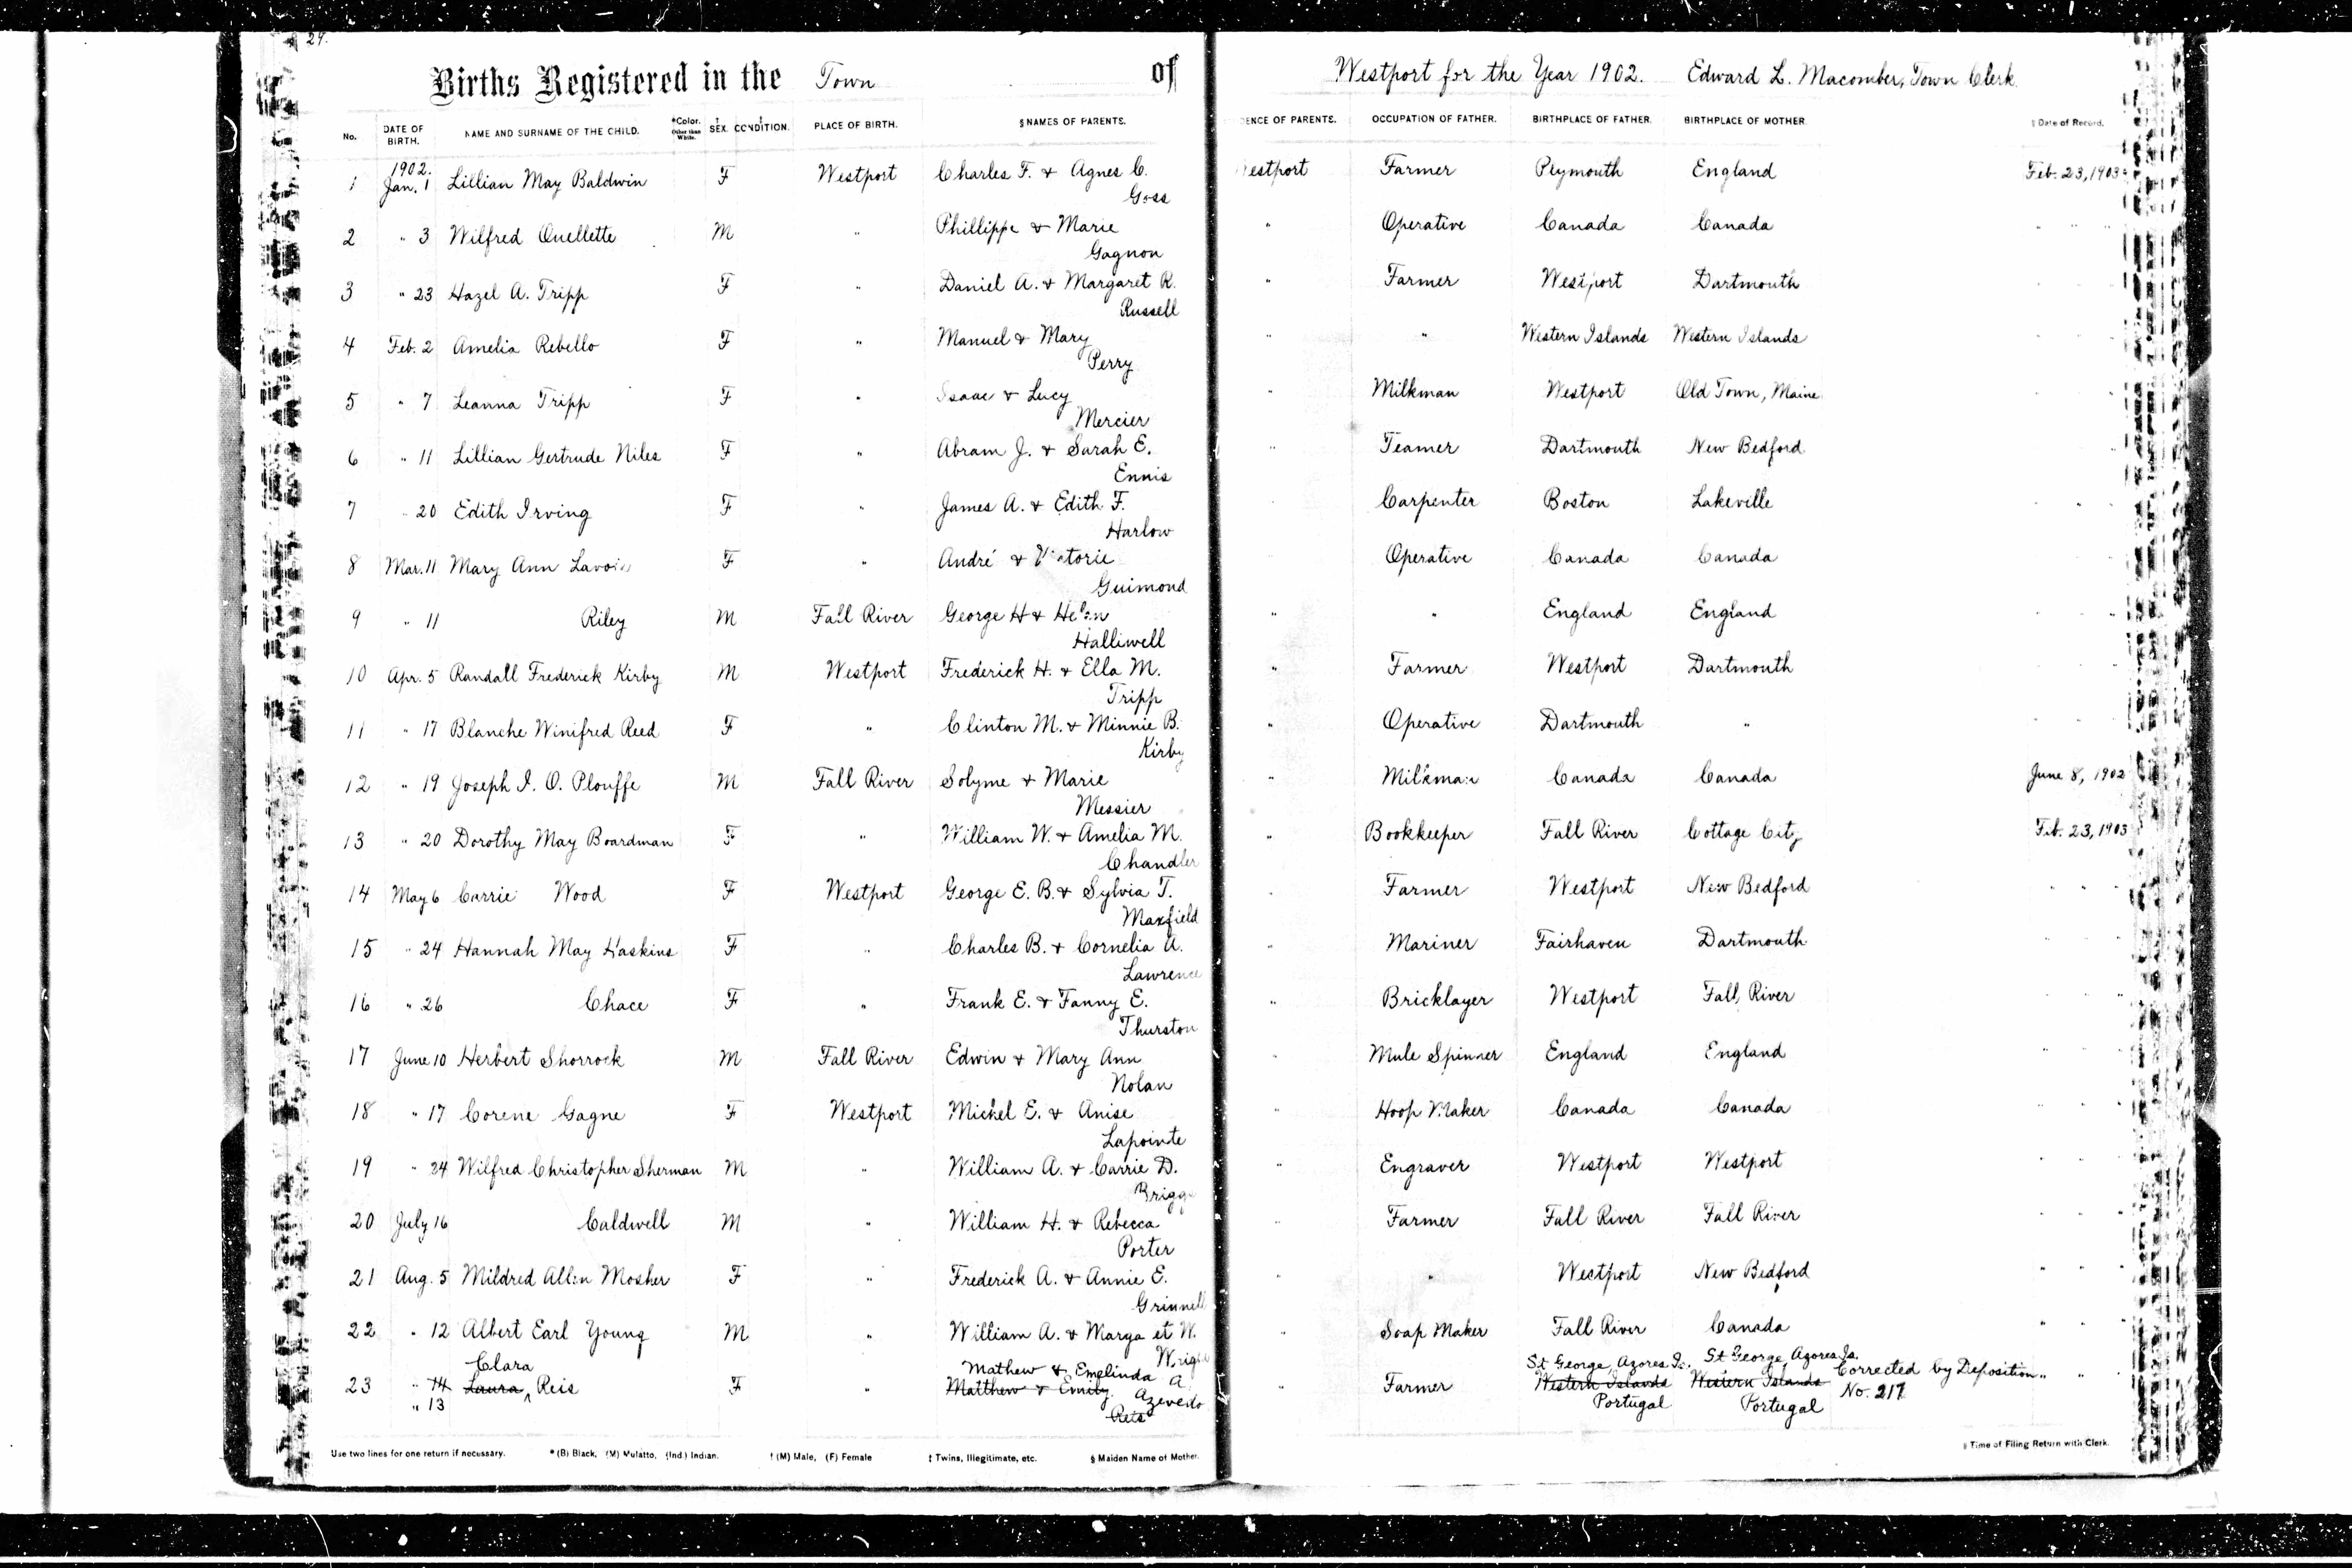 29.
Births Registered in the Town of Westport for the Year 1902. Edward L. Macomber, Town Clerk.
No. DATE OF BIRTH. NAME AND SURNAME OF THE CHILD. *Color. Other than White. † SEX. ‡ CONDITION. PLACE OF BIRTH. § NAMES OF PARENTS. ENCE OF PARENTS. OCCUPATION OF FATHER. BIRTHPLACE OF FATHER. BIRTHPLACE OF MOTHER. ‖ Date of Record.
1902.
1 Jan. 1 Lillian May Baldwin F Westport Charles F. & Agnes C. estport Farmer Plymouth England Feb. 23, 1903
Goss
2 " 3 Wilfred Ouellette M " Phillippe & Marie " Operative Canada Canada " " "
Gagnon
3 " 23 Hazel A. Tripp F " Daniel A. & Margaret R. " Farmer Westport Dartmouth " "
Russell
4 Feb. 2 Amelia Rebello F " Manuel & Mary " " Western Islands Western Islands " "
Perry
5 " 7 Leanna Tripp F " Isaac & Lucy " Milkman Westport Old Town, Maine " "
Mercier
6 " 11 Lillian Gertrude Niles F " Abram J. & Sarah E. " Teamer Dartmouth New Bedford " "
Ennis
7 " 20 Edith Irving F " James A. & Edith F. Carpenter Boston Lakeville " "
Harlow
8 Mar. 11 Mary Ann Lavoie F " André & Victorie Operative Canada Canada " "
Guimond
9 " 11 Riley M Fall River George H & Helen " " England England " "
Halliwell
10 Apr. 5 Randall Frederick Kirby M Westport Frederick H. & Ella M. " Farmer Westport Dartmouth " "
Tripp
11 " 17 Blanche Winifred Reed F " Clinton M. & Minnie B. " Operative Dartmouth " " "
Kirby
12 " 19 Joseph I. O. Plouffe M Fall River Solyme & Marie " Milkman Canada Canada June 8, 1902
Messier
13 " 20 Dorothy May Boardman F " William W. & Amelia M. " Bookkeeper Fall River Cottage City Feb. 23, 1903
Chandler
14 May 6 Carrie Wood F Westport George E. B. & Sylvia T. " Farmer Westport New Bedford " " "
Maxfield
15 " 24 Hannah May Haskins F " Charles B. & Cornelia A. " Mariner Fairhaven Dartmouth " "
Lawrence
16 " 26 Chace F " Frank E. & Fanny E. " Bricklayer Westport Fall River " "
Thurston
17 June 10 Herbert Shorrock M Fall River Edwin & Mary Ann " Mule Spinner England England " " "
Nolan
18 " 17 Corene Gagne F Westport Michel E. & Anise " Hoop Maker Canada Canada " " "
Lapointe
19 " 24 Wilfred Christopher Sherman M " William A. & Carrie D. " Engraver Westport Westport " " "
Briggs
20 July 16 Caldwell M " William H. & Rebecca " Farmer Fall River Fall River " " "
Porter
21 Aug. 5 Mildred Allen Mosher F " Frederick A. & Annie E. " " Westport New Bedford " " "
Grinnell
22 " 12 Albert Earl Young M " William A. & Margaret W. " Soap Maker Fall River Canada " " "
Wright
Clara Mathew & Emelinda A. St George, Azores Is. St George, Azores Is. Corrected by Deposition
23 " 14 Laura Reis F " Matthew & Emily Azevedo Farmer Western Islands Western Islands No. 217 " " "
" 13 Reis Portugal Portugal
Use two lines for one return if necessary. * (B) Black, (M) Mulatto, (Ind.) Indian. † (M) Male, (F) Female ‡ Twins, Illegitimate, etc. § Maiden Name of Mother. ‖ Time of Filing Return with Clerk.